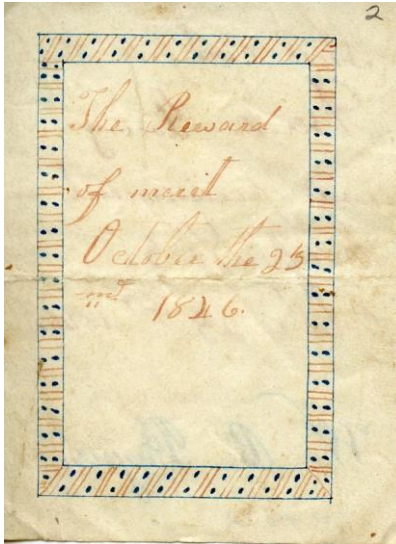 2
The Reward
of merit
October the 23
1846.